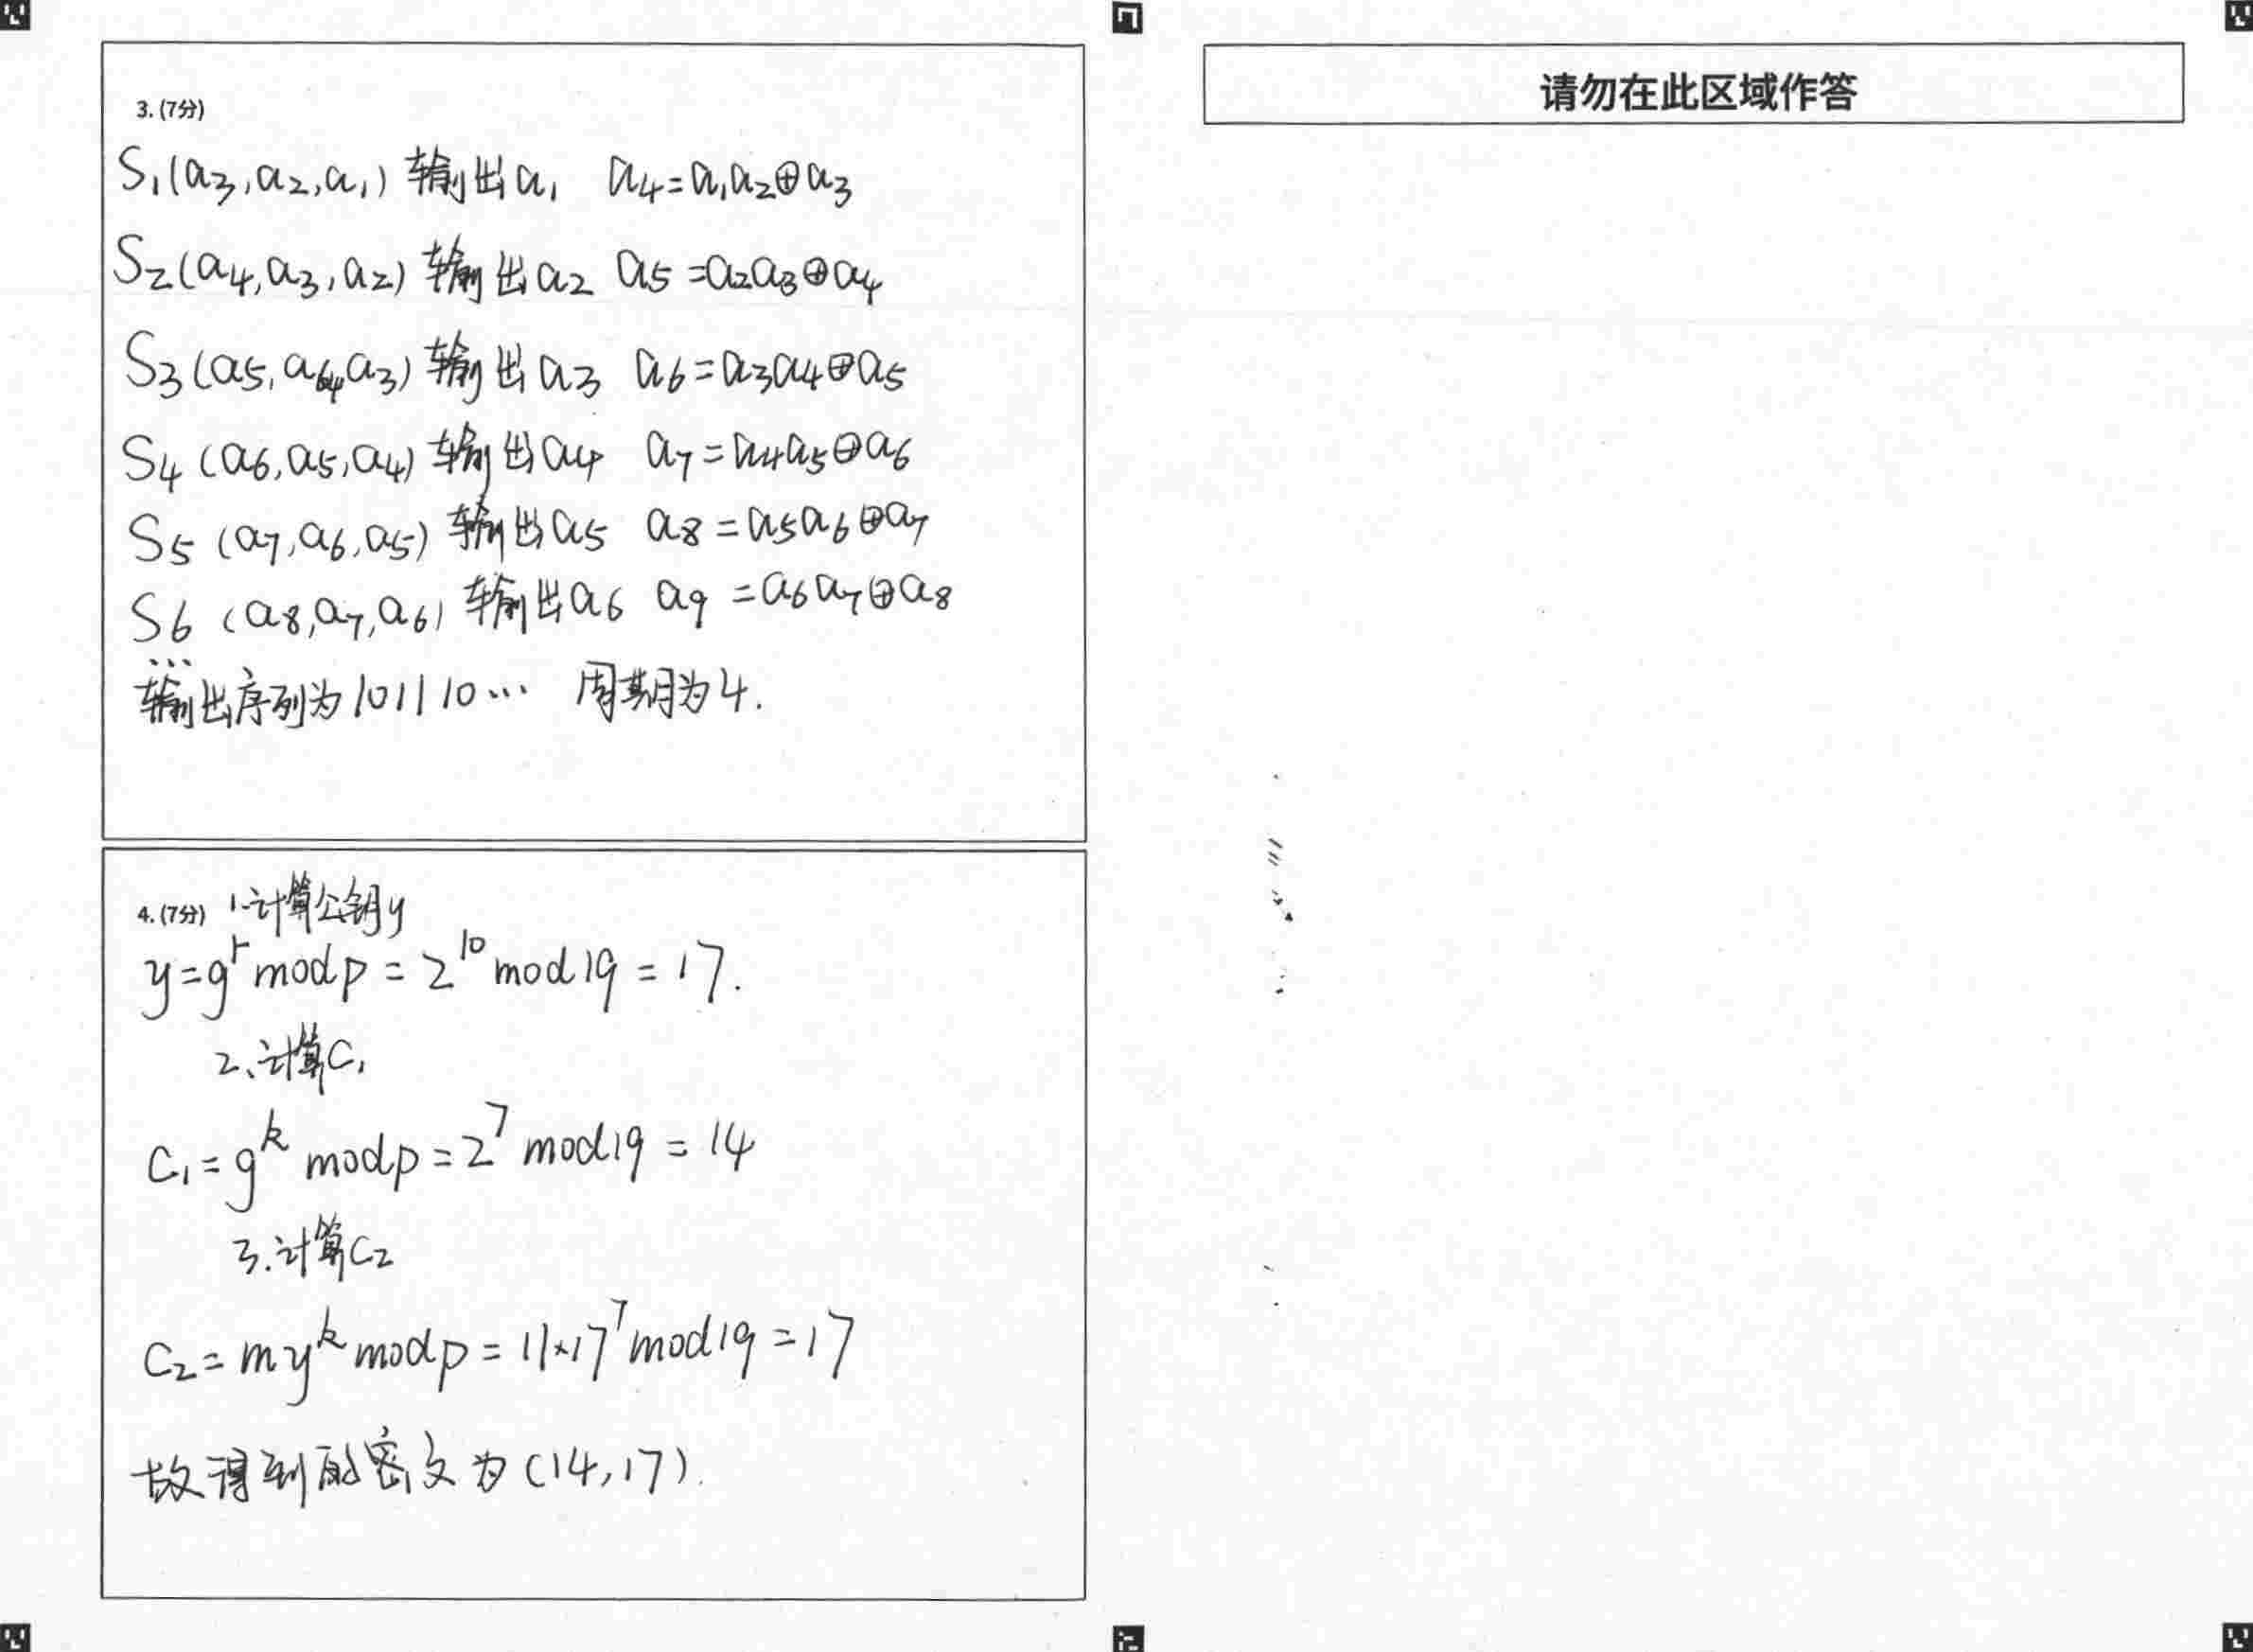 3. (7分)
S₁(a₃,a₂,a₁) 输出a₁ a₄=a₁a₂⊕a₃
S₂(a₄,a₃,a₂) 输出a₂ a₅=a₂a₃⊕a₄
S₃(a₅,a₄,a₃) 输出a₃ a₆=a₃a₄⊕a₅
S₄(a₆,a₅,a₄) 输出a₄ a₇=a₄a₅⊕a₆
S₅(a₇,a₆,a₅) 输出a₅ a₈=a₅a₆⊕a₇
S₆(a₈,a₇,a₆) 输出a₆ a₉=a₆a₇⊕a₈
…
输出序列为101110… 周期为4.
4. (7分) 1.计算公钥y
y=gʳmodp=2¹⁰mod19=17.
2、计算C₁
C₁=gᵏ modp=2⁷ mod19=14
3.计算C₂
C₂=myᵏmodp=11×17⁷mod19=17
故得到的密文为(14,17).
请勿在此区域作答